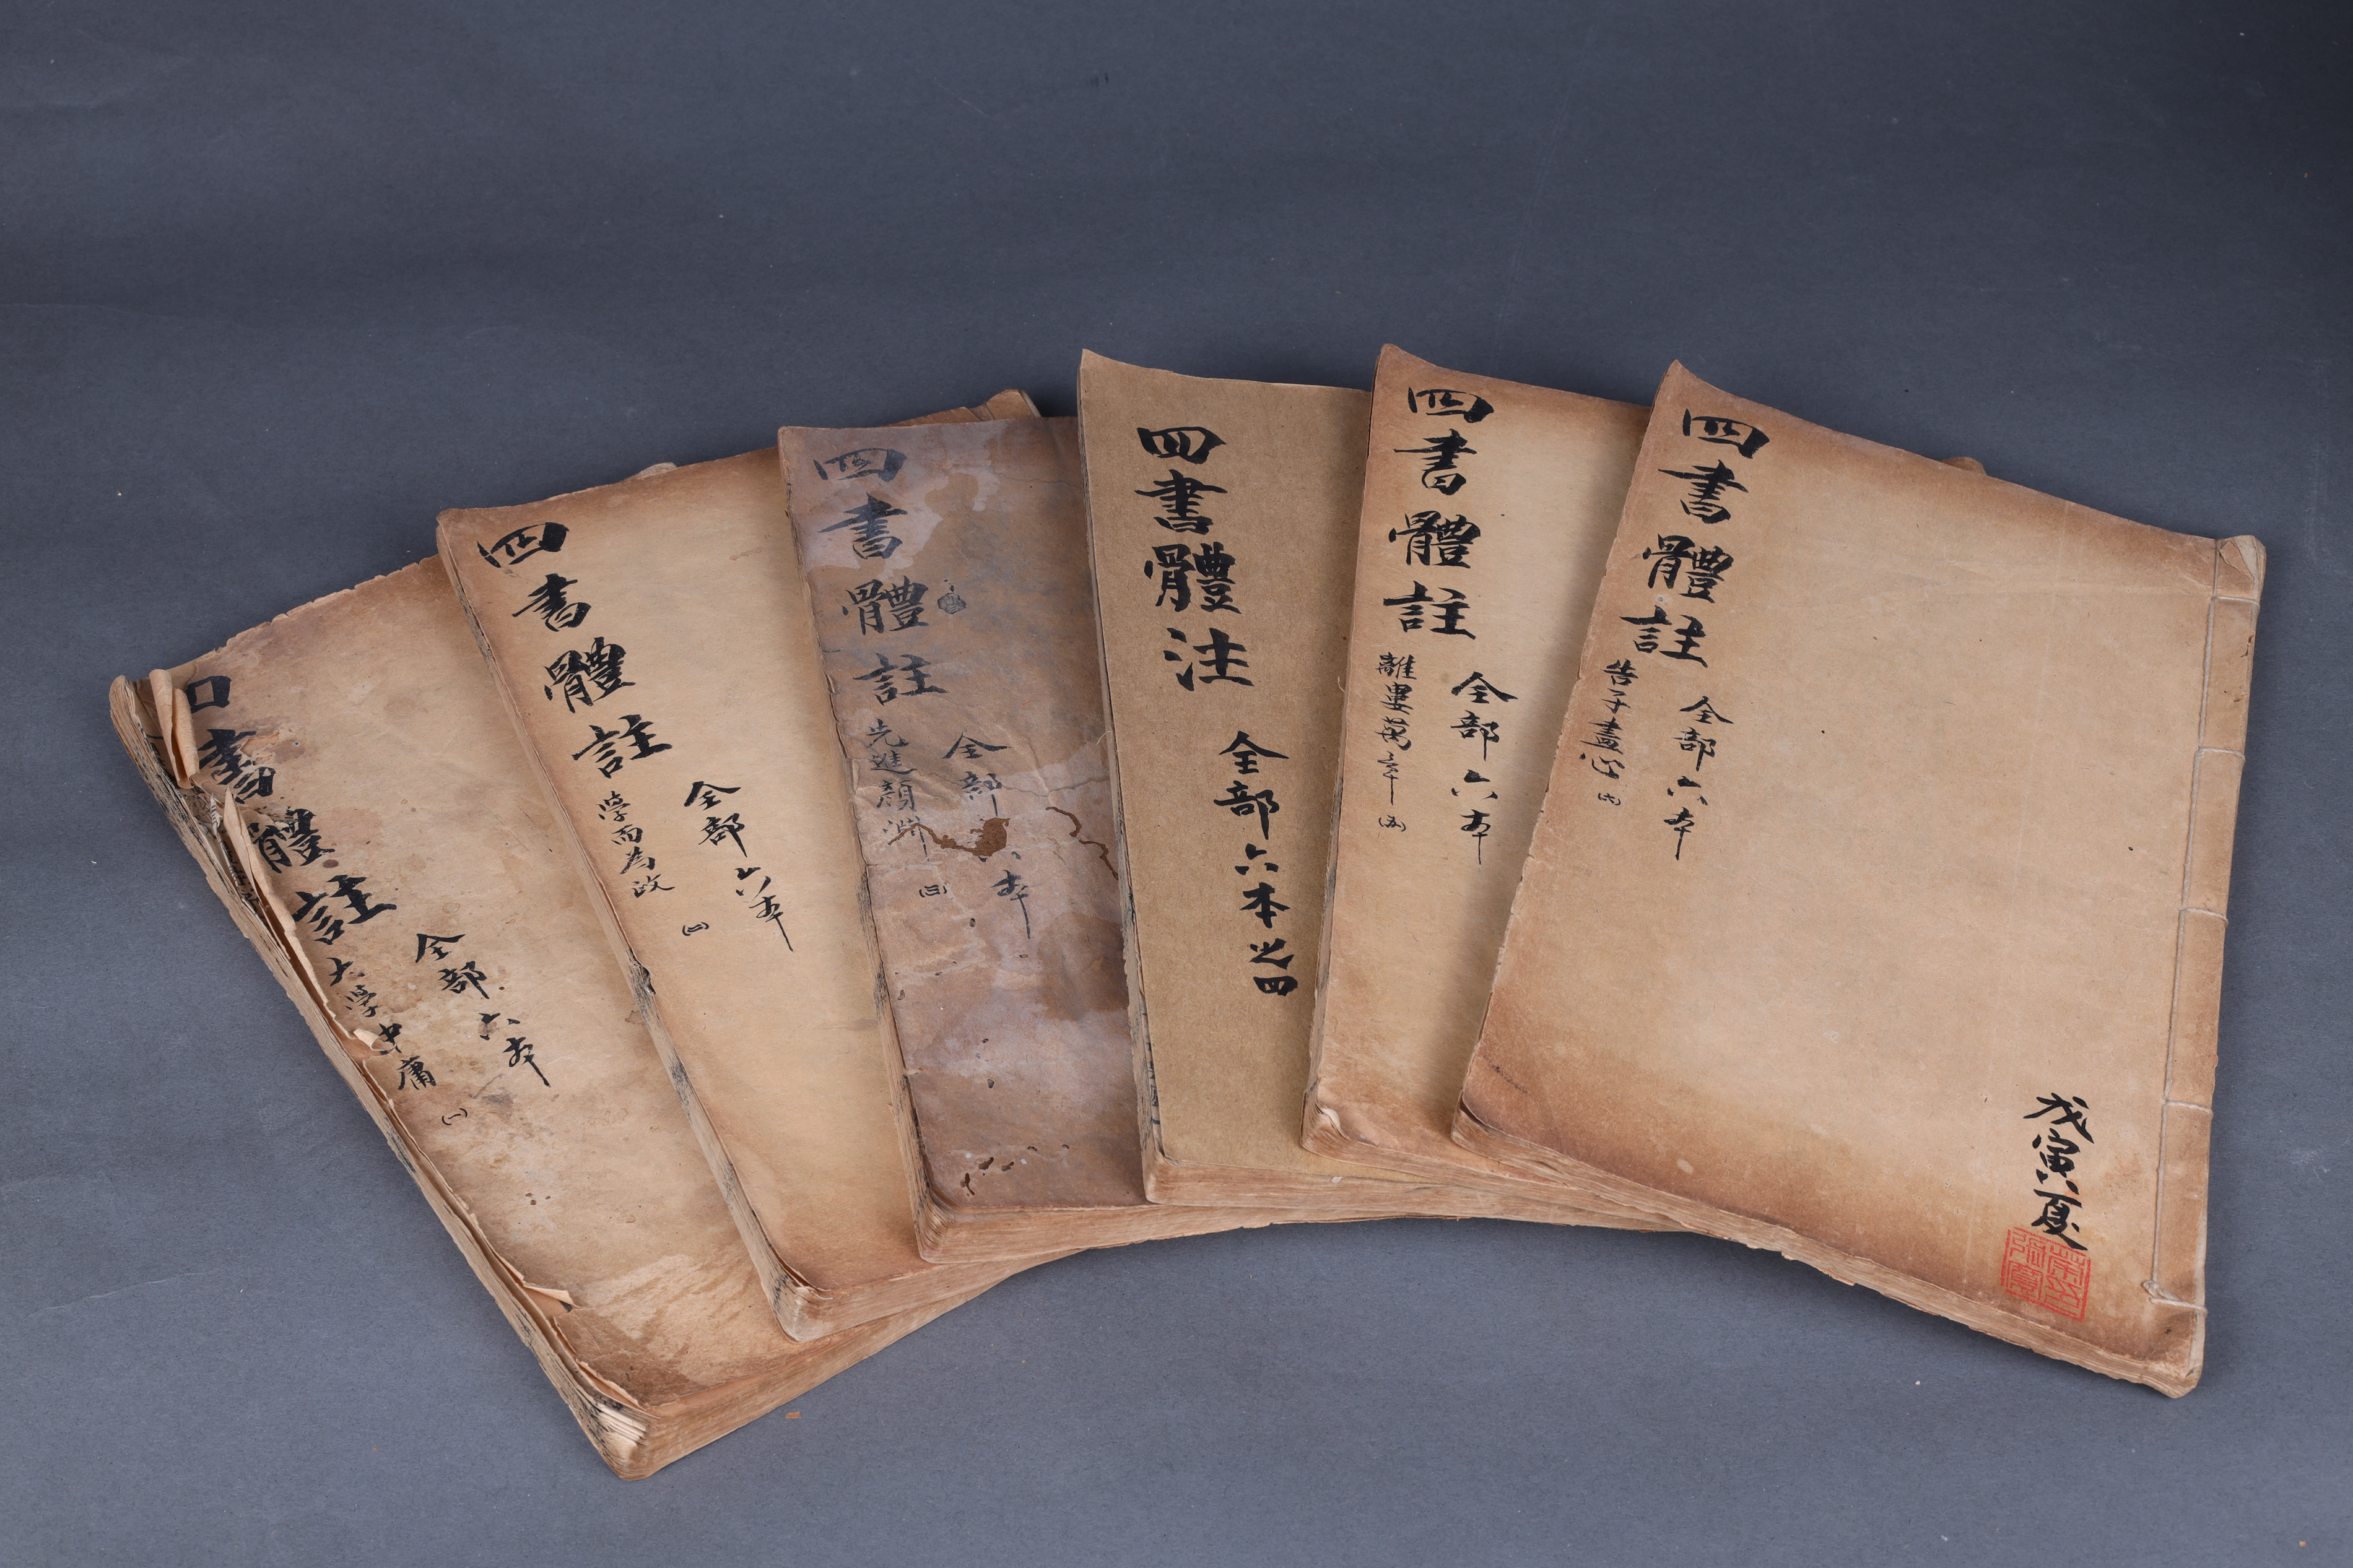 書體註
大學中庸
全部六本
(一)
四書體註
學而為政
全部六本
(二)
四書體註
先進顏淵
全部六本
(三)
四書體注
全部六本之四
四書體註
離婁萬章
全部六本
(五)
四書體註
告子盡心
全部六本
(六)
戊寅夏